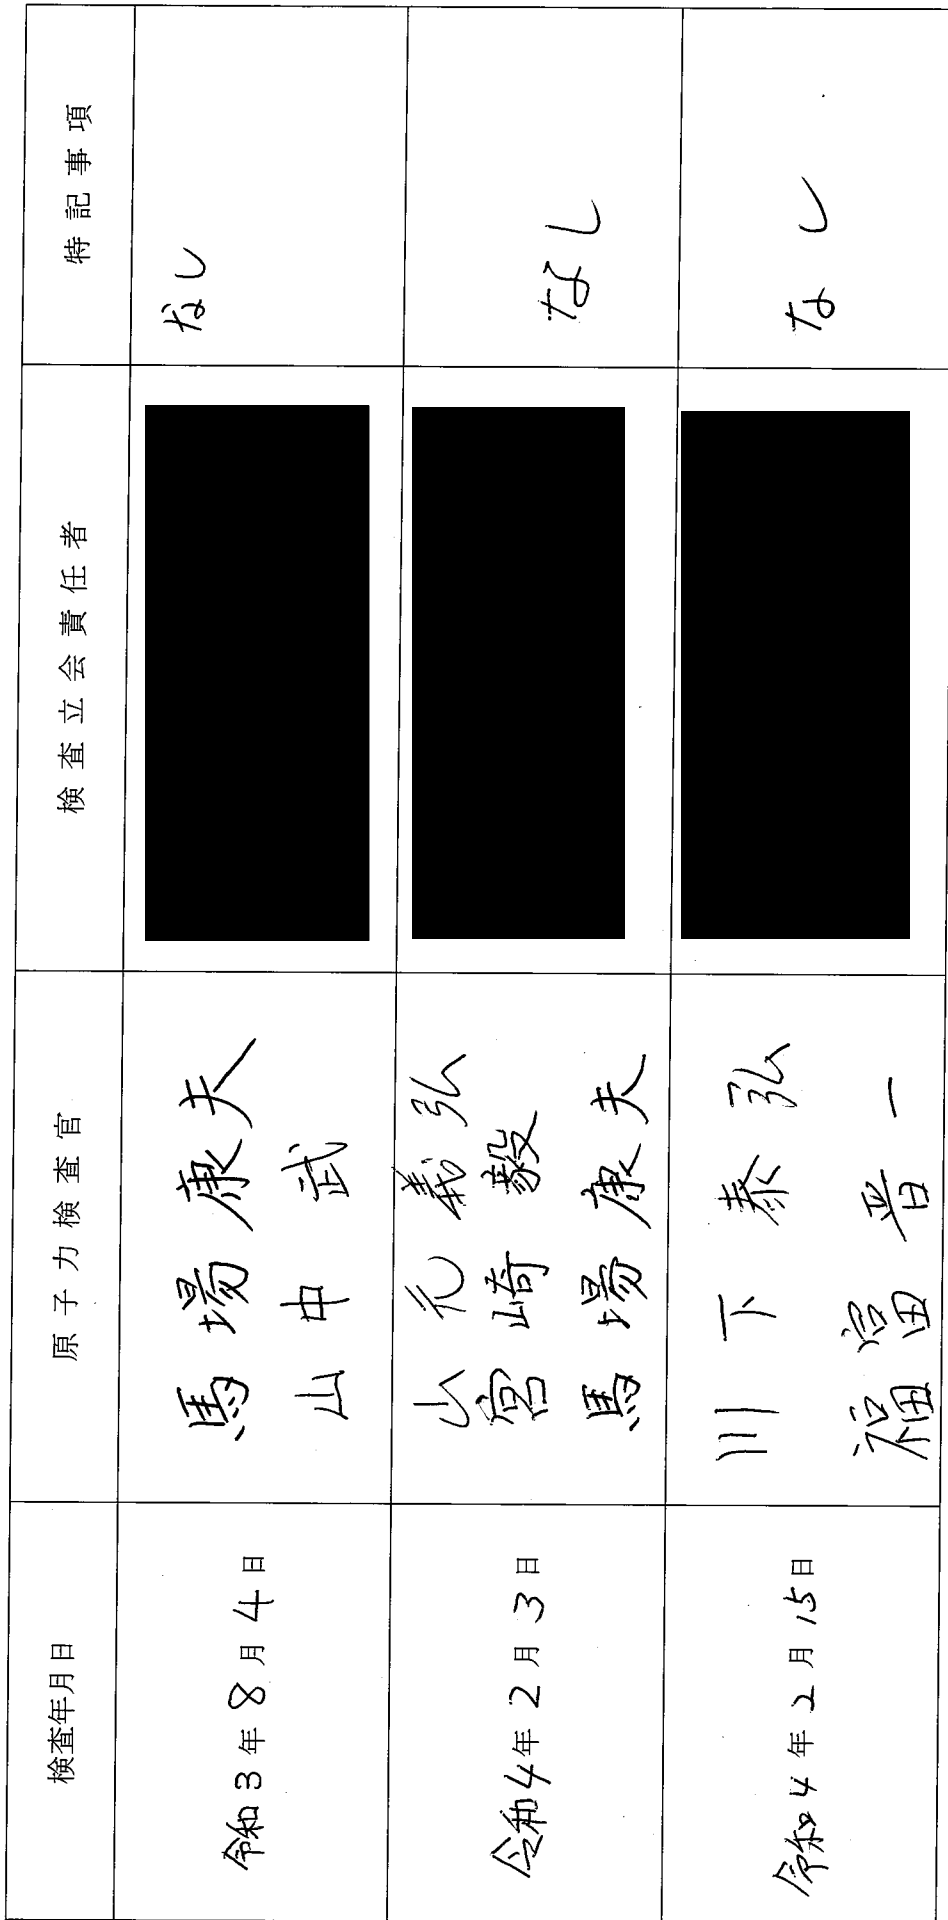 検査年月日
原子力検査官
検査立会責任者
特記事項
令和3年8月4日
馬場康夫
山中武
なし
令和4年2月3日
山元義弘
宮崎毅
馬場康夫
なし
令和4年2月15日
川下泰弘
福冨晋一
なし